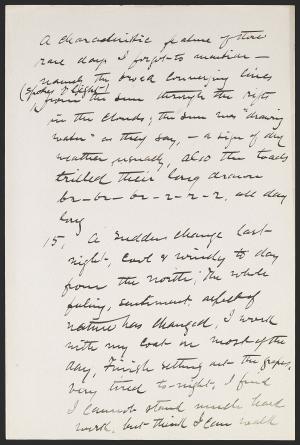 A characteristic feature of these
rare days I forgot to mention —
namely the broad converging lines
(spokes of light)
from the sun through the rifts
in the clouds; the sun was "drawing
water" as they say, — a sign of dry
weather usually, also the toads
trilled their long drawn
br-br-br-r-r-r, all day
long
15, A sudden change last-
night, Cool & windy to day
from the north; The whole
feeling, sentiment, aspect of
nature has changed, I work
with my coat on most of the
day, Finish setting out the grapes,
very tired to-night, I find
I cannot stand much hard
work, but think I can walk